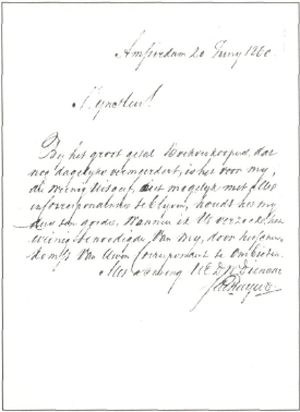 Amsterdam 20 Juny 186
Mynheer!
By het groot getal Boekverkoopers, dat
nog dagelyks vermeerdert, is het voor my,
als weinig niet mogelyk met alle
in correspondentie te blyven, houdt het my
ten goede, wanneer ik U verzoek het
weinig benoodigde van my, door
van Uwen Correspondent te ontbieden.
Met achting UEd Dw Dienaar